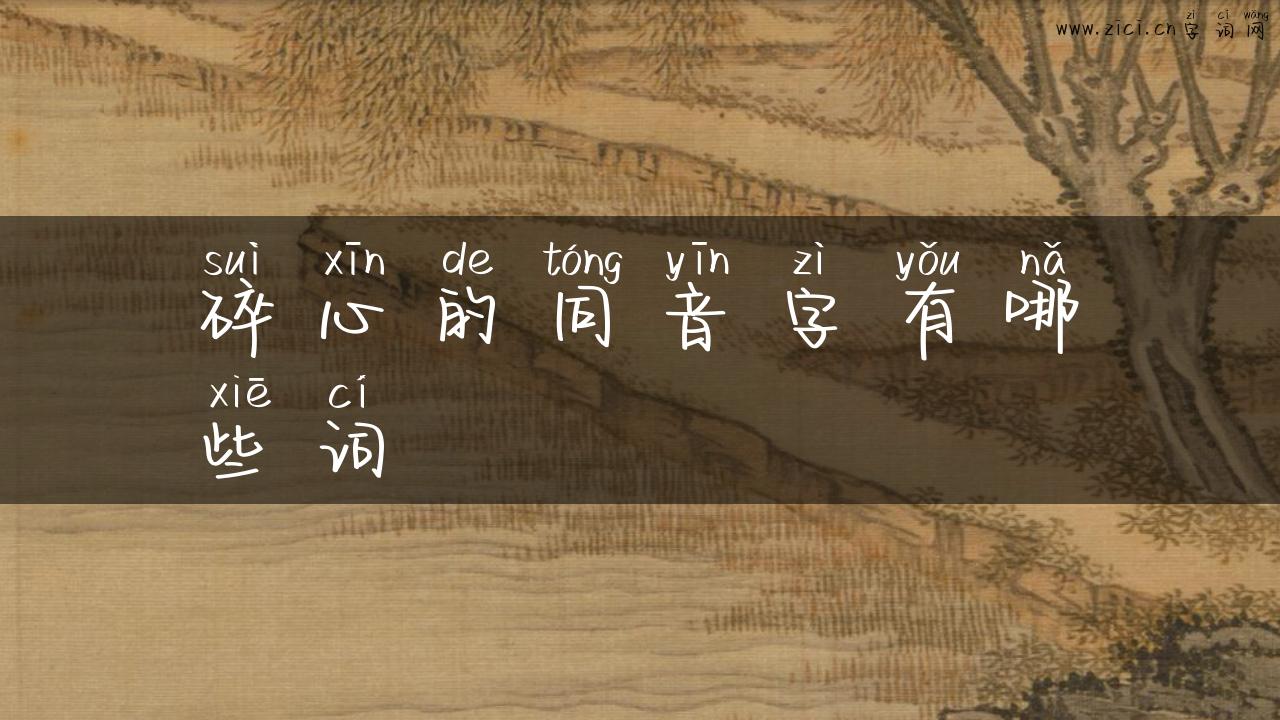 zì cí wǎng
www.zici.cn字词网
suì xīn de tóng yīn zì yǒu nǎ
碎心的同音字有哪
xiē cí
些词